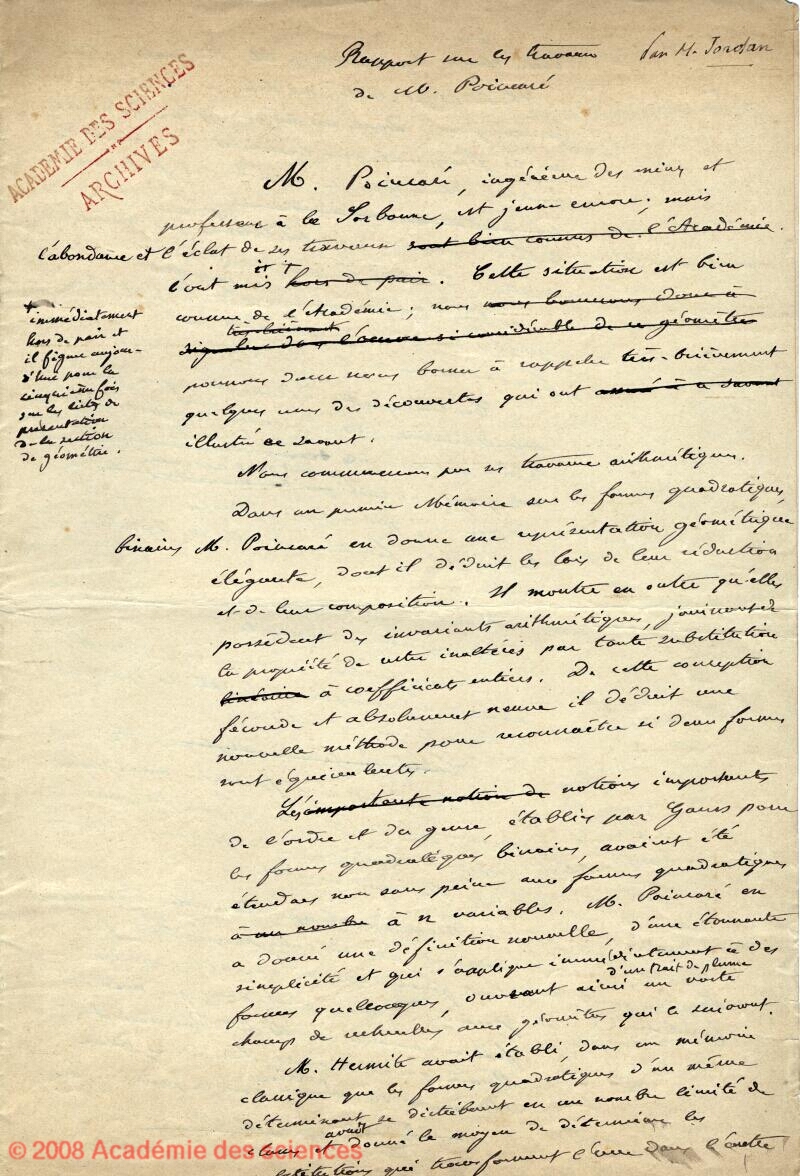 Rapport sur les travaux Par M. Jordan
de M. Poincaré
ACADEMIE DES SCIENCES
ARCHIVES
M. Poincaré, ingénieur des mines et
professeur à la Sorbonne, est jeune encore; mais
l'abondance et l'éclat de ses travaux sont bien connus de l'Académie.
l'ont mis hors de pair. Cette situation est bien
connue de l'Académie; nous nous bornerons donc à
très brièvement
signaler dans l'œuvre si considérable de ce géomètre
pouvons donc nous borner à rappeler très-brièvement
quelques unes des découvertes qui ont à ce savant
illustré ce savant.
+ immédiatement
hors de pair et
il figure aujour-
d'hui pour la
cinquième fois
sur les listes de
présentation
de la section
de géométrie.
Nous commencerons par ses travaux arithmétiques.
Dans un premier Mémoire sur les formes quadratiques,
binaires M. Poincaré en donne une représentation géométrique
élégante, dont il déduit les lois de leur réduction
et de leur composition. Il montre en outre qu'elles
possèdent des invariants arithmétiques, jouissant de
la propriété de rester inaltérés par toute substitution
linéaire à coefficients entiers. De cette conception
féconde et absolument neuve il déduit une
nouvelle méthode pour reconnaître si deux formes
sont équivalentes.
Les importante notion de notions importants
de l'ordre et du genre, établies par Gauss pour
les formes quadratiques binaires, avaient été
étendues non sans peine aux formes quadratiques
à un nombre à n variables. M. Poincaré en
a donné une définition nouvelle, d'une étonnante
simplicité et qui s'applique immédiatement à des
d'un trait de plume
formes quelconques, ouvrant ainsi un vaste
champ de recherches aux géomètres qui le suivront.
M. Hermite avait établi, dans un mémoire
classique que les formes quadratiques d'un même
déterminant se distribuent en un nombre limité de
avait
classes et donné le moyen de déterminer les
substitutions qui transforment l'une dans l'autre
© 2008 Académie des sciences